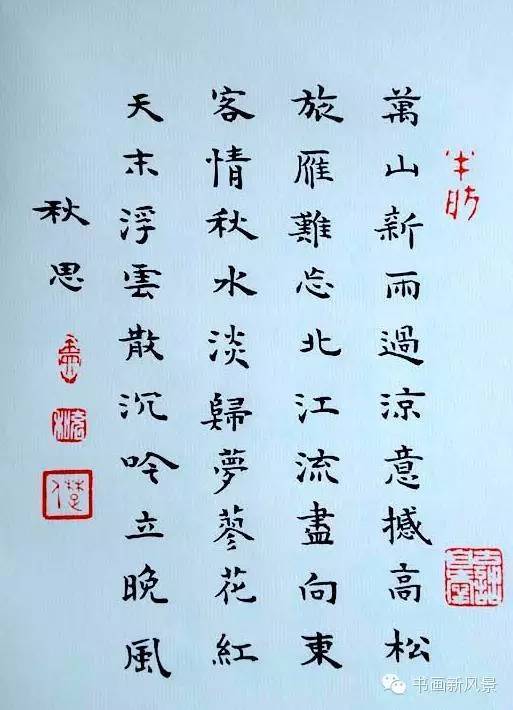 萬山新雨過涼意撼高松
旅雁難忘北江流盡向東
客情秋水淡歸夢蓼花紅
天末浮雲散沉吟立晚風
秋思
书画新风景